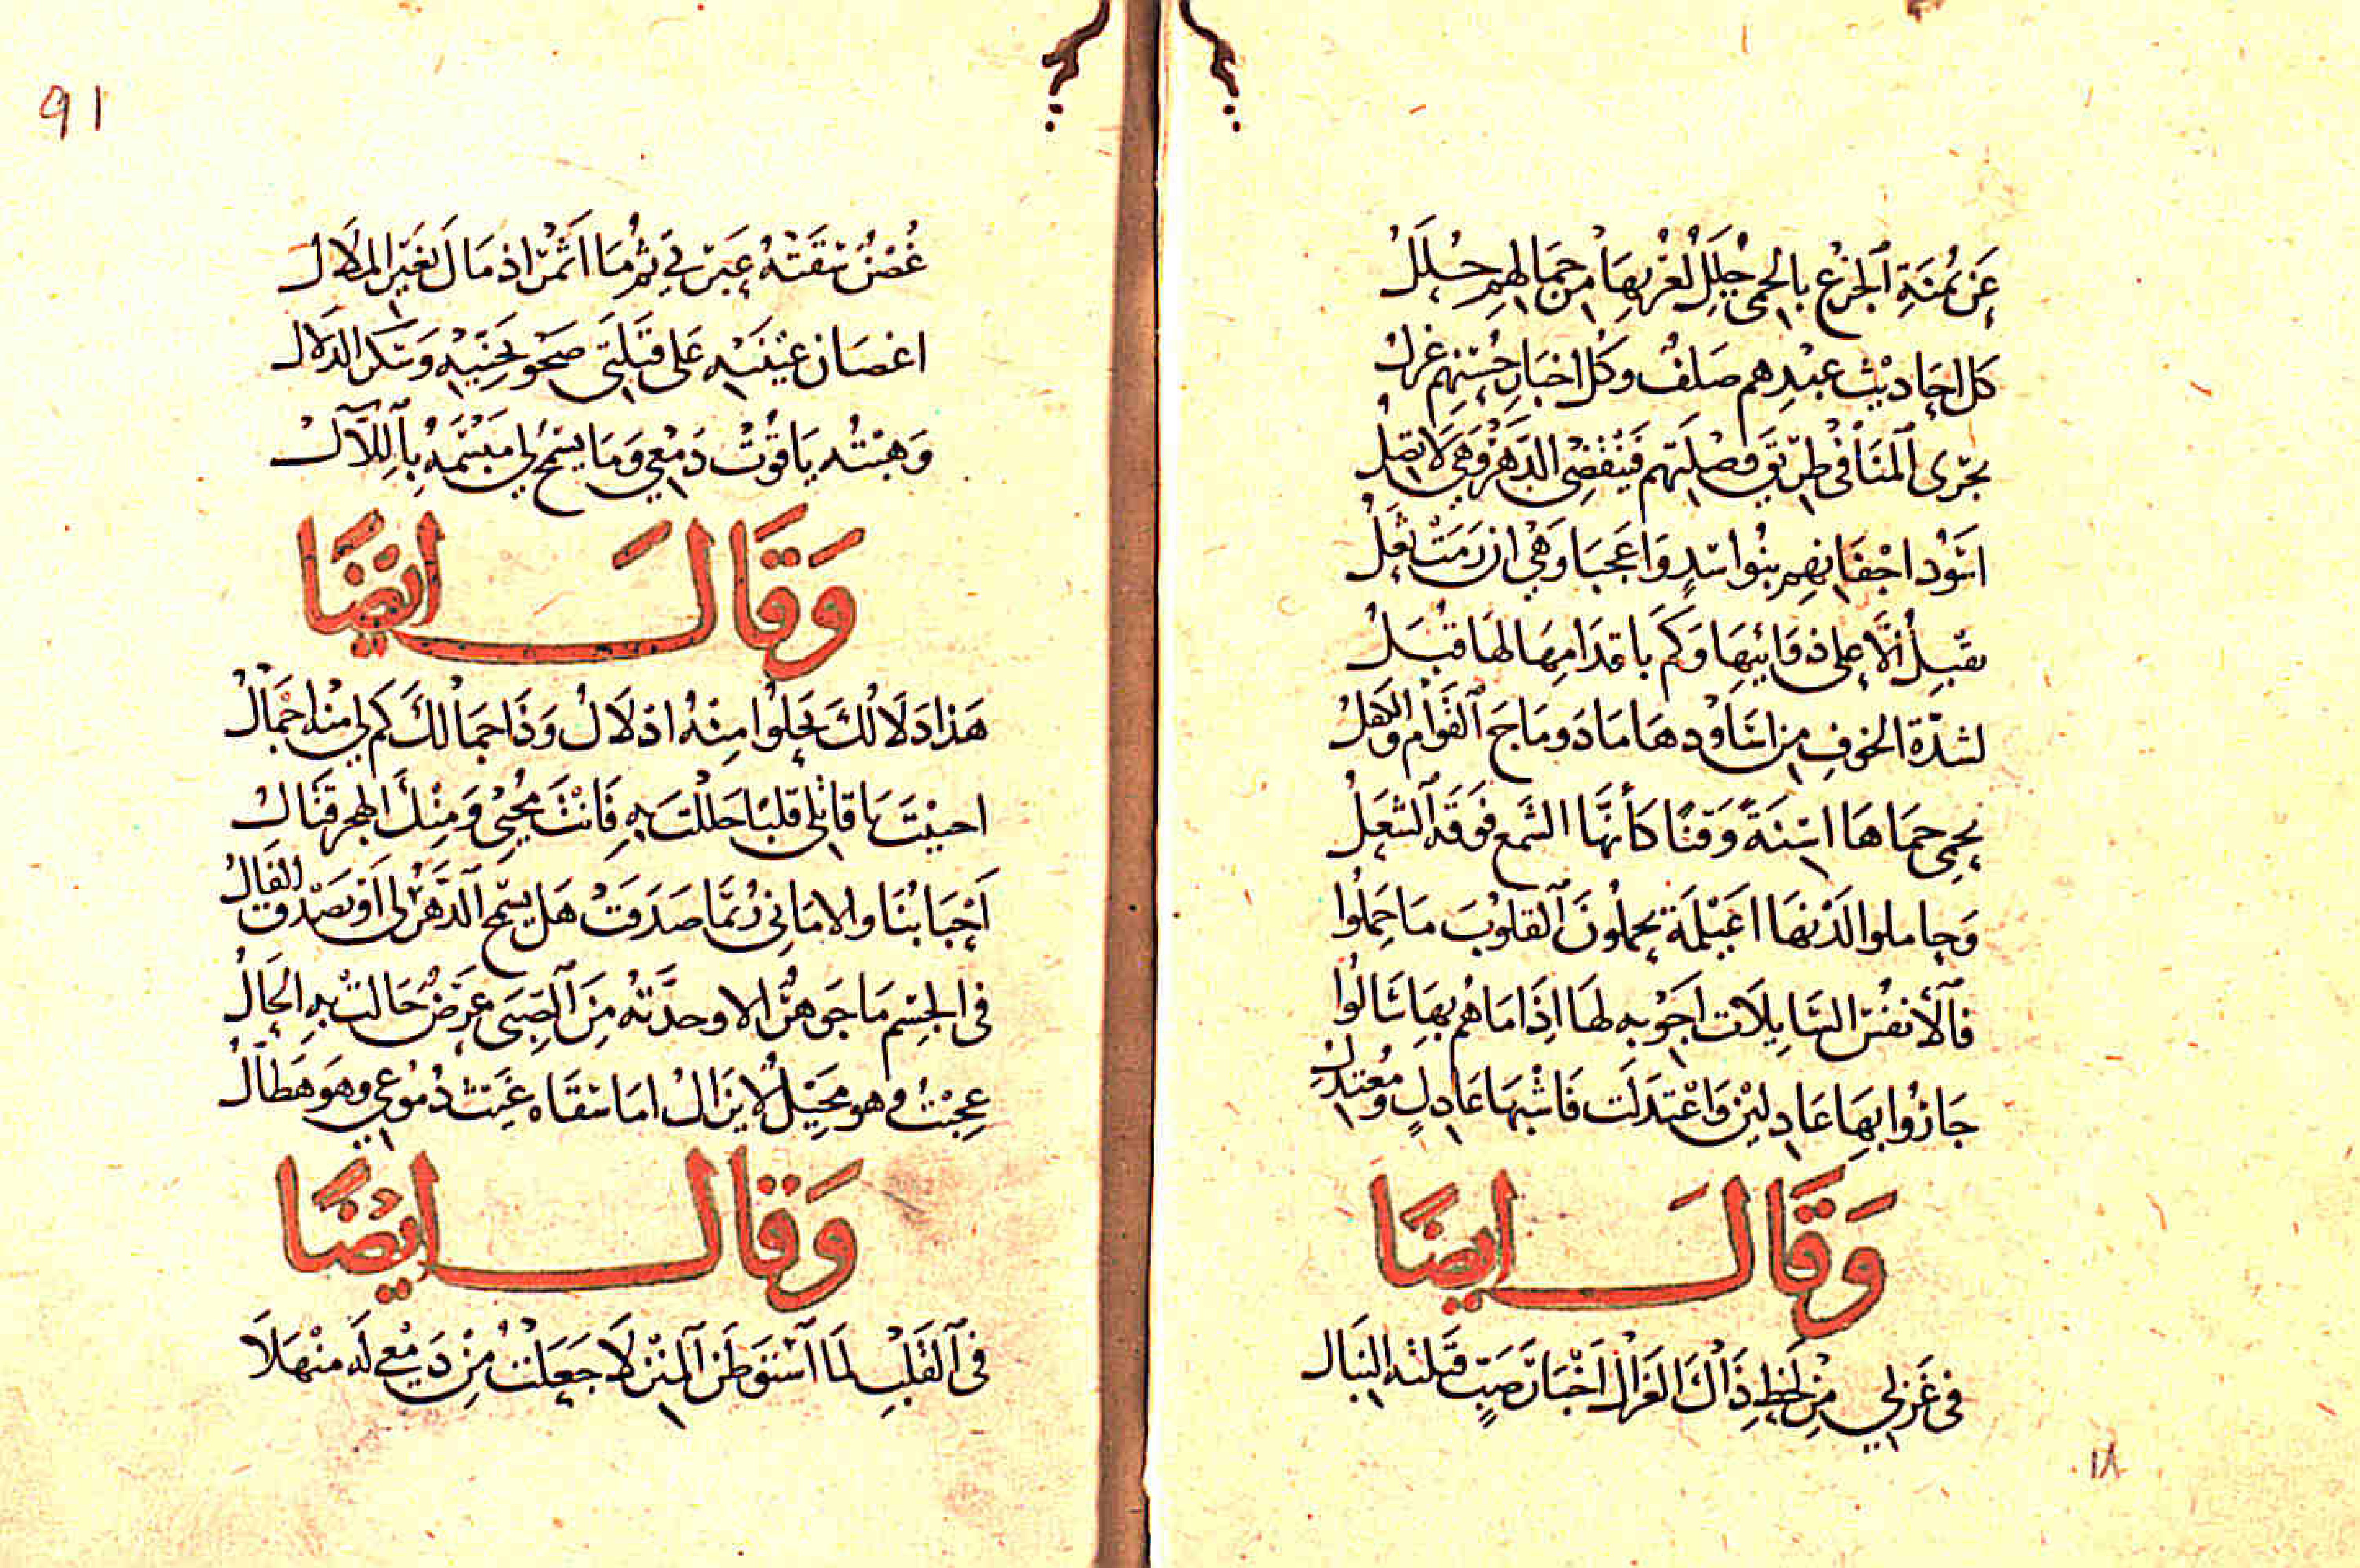 عَن يُمنَةِ الجَزْعِ بالحمى حِلَلٌ لعُرْبِهَا من جمالهم حُلَلُ
كل احاديث عبدهم صلف وكل اخبار حسنهم غزلُ
تجرى المنَا فى طريق وصلتهم فينقضى الدهر وهى لا تصلُ
اسُود اجفانهم بنوا اسدٍ واعجبا وهى ان رمت ثُعَلُ
تقبل الا على ذوائبها وكم باقدامها لها قُبَلُ
لشدّة الخوف من اساودها ماد وماج القوام والكفلُ
يحمى حماها اسنة وقنا كأنّها الشمع فوقه الشعلُ
وحاملوا لدنها اغيلمة يحملون القلوب ما حملوا
فالأنفس السايلات اجوبه لها اذا ما هم بها سالوا
جاروا بها عادلين واعتدلت فاشبها عادلٍ ومعتدلُ
وَقَالَ ايضًا
فى غزلي من لحظ ذاك الغزال اخبار صبٍّ قتلته النبال
١٨
٩١
غصنٌ سقته عبرتي ثم ما اثمر اذ مال بغير الملال
اغصان عينيه على قتلتى صحو بجنبيه وسكر الدلال
وهبته ياقوت دمعي وما يسمح لي مبسمه باللآل
وَقَالَ ايضًا
هذا دلالك يحلوا منه اذلال وذا جمالك كم لي منه اجمالُ
احييت يا قاتلى قلبًا حللت به فانت محيى ومنك الهجر قتّالُ
أحبابنا والامانى ربّما صدقت هل يسمح الدهر لى او يصدق الفالُ
فى الجسم ما جوهرٌ الا وحدّته من الضنى عرضٌ حالت به الحالُ
عجبت وهو محيل لا يزال اما سقاه غيث دموعي وهو هطّالُ
وَقَال ايضًا
فى القلب لما استوطن المنزلا جعلت من دمعى له منهلا